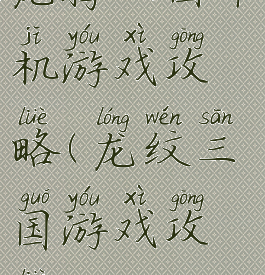 jī yóu xì gōng
机游戏攻
lüè lóng wén sān
略(龙纹三
guó yóu xì gōng
国游戏攻